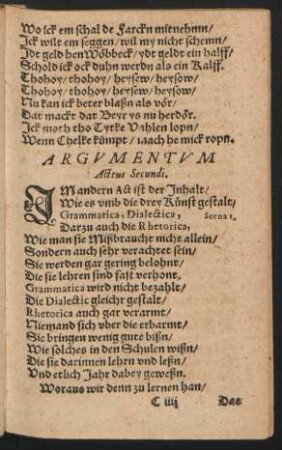 Wo ick em schal de Farckn mitnehmn/
Ick wilt em seggen/ wil my nicht schemn/
Idt geld hen Wöbbeck/ ydt geldt ein halff/
Schold ick ock duhn werdn als ein Kalff.
Thohoy/ thohoy/ heysew/ heysow/
Thohoy/ thohoy/ heysew/ heysow/
Nu kan ick beter blaßn als vör/
Dat mackt dat Beyr ys nu herdör.
Ick moth tho Tytke Vahlen lopn/
Wenn Chelke kümpt/ nach he mick ropn.
ARGVMENTVM
Actus Secundi.
IM andern Act ist der Inhalt/
Wie es vmb die drey Künst gestalt/
Grammatica, Dialectica,
Darzu auch die Rhetorica,
Wie man sie Mißbraucht nicht allein/
Sondern auch sehr verachtet sein/
Sie werden gar gering belohnt/
Die sie lehren sind fast verhont,
Grammatica wird nicht bezahlt/
Die Dialectic gleichr gestalt/
Rhetorica auch gar verarmt/
Niemand sich vber die erbarmt/
Sie bringen wenig gute bißn/
Wie solches in den Schulen wißn/
Die sie darinnen lehrn vnd leßn/
Vnd etlich Jahr dabey geweßn.
Woraus wir denn zu lernen han/
C iiij Das